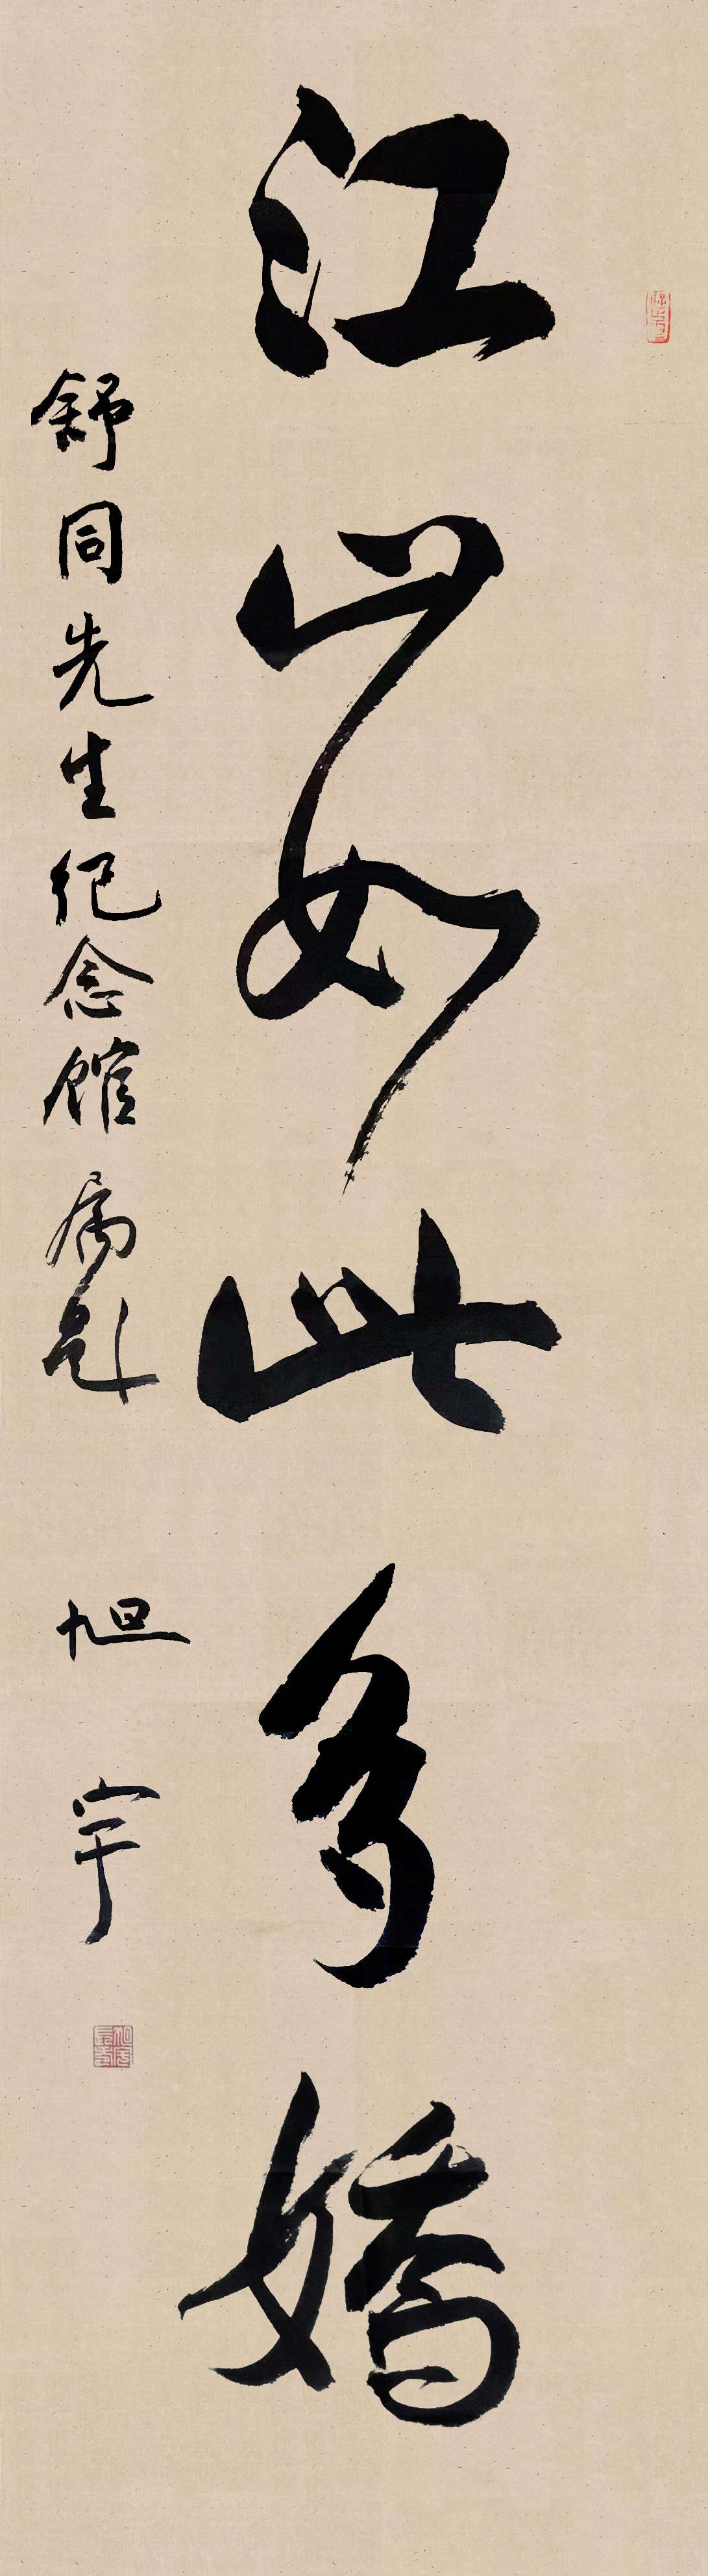 江山如此多嬌
舒同先生纪念馆属题
旭宇